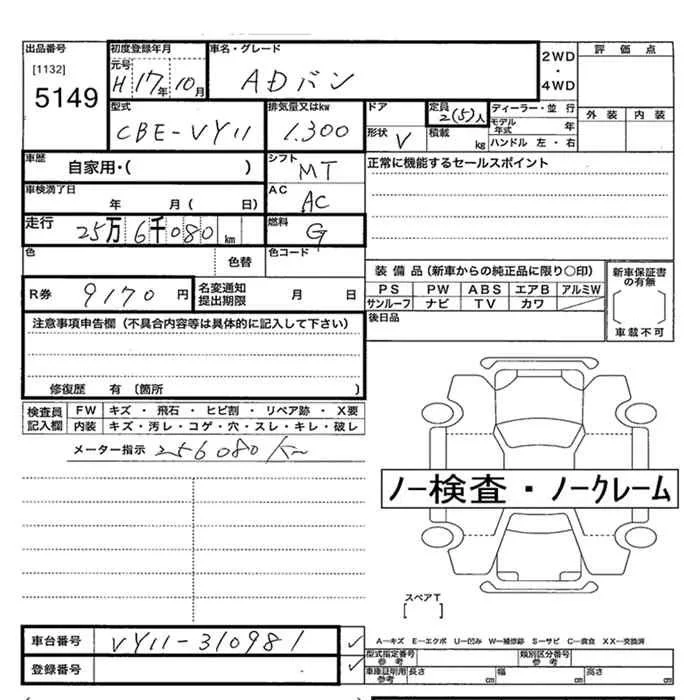 出品番号 初度登録年月 車名・グレード 2WD・4WD 評価点
[1132] 元号
5149 H17年10月 ADバン
型式 排気量又はkw ドア 定員 2(5)人 ディーラー・並行 外装 内装
モデル年式 年
CBE-VY11 1.300 形状 V 積載 kg ハンドル 左・右
車歴 シフト 正常に機能するセールスポイント
自家用・( ) MT
車検満了日 AC
年 月( 日) AC
走行 25万6千080km 燃料 G
色 色替 色コード
装備品(新車からの純正品に限り○印) 新車保証書の有無
R券 9170円 名変通知提出期限 月 日 PS PW ABS エアB アルミW
サンルーフ ナビ TV カワ
[ ]
注意事項申告欄(不具合内容等は具体的に記入して下さい) 後日品 車載不可
修復歴 有〔箇所 )
検査員記入欄 FW キズ・飛石・ヒビ割・リペア跡・X要
内装 キズ・汚レ・コゲ・穴・スレ・キレ・破レ
メーター指示 256080km
ノー検査・ノークレーム
スペアT
[ ]
車台番号 VY11-310981 ✓ A-キズ E-エクボ U-凹み W-補修跡 S-サビ C-腐食 XX-交換済
型式指定番号参考 類別区分番号参考
登録番号 ✓ 車庫証明用参考 長さ cm 幅 cm 高さ cm